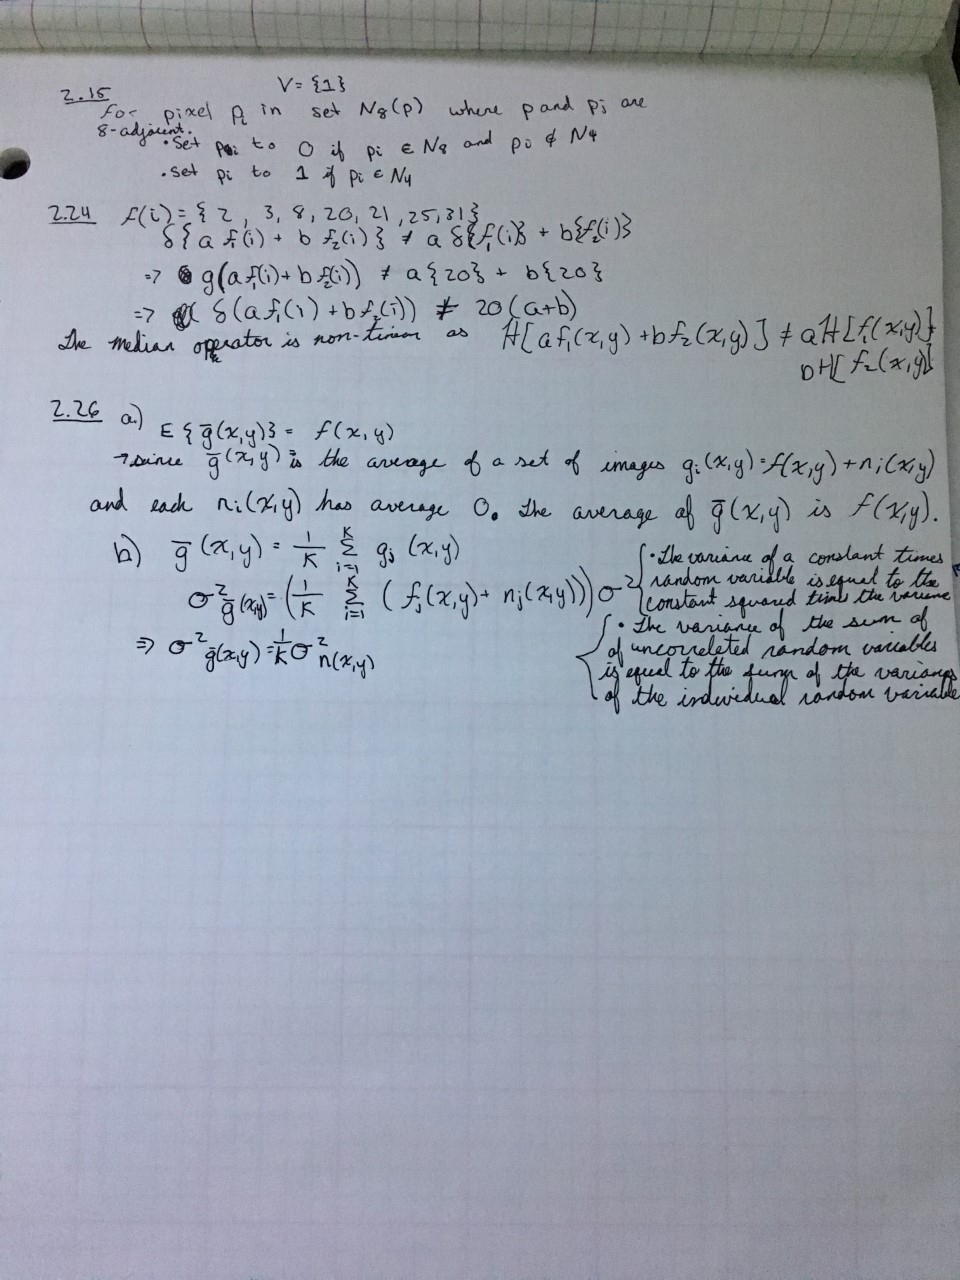 2.15 V = {1}
for pixel pᵢ in set N₈(p) where p and pⱼ are
8-adjacent.
• Set pᵢ to 0 if pᵢ ∈ N₈ and pᵢ ∉ N₄
• set pᵢ to 1 if pᵢ ∈ N₄
2.24 f(i) = { 2, 3, 8, 20, 21, 25, 31}
δ{a f₁(i) + b f₂(i)} ≠ a δ{f₁(i)} + b{f₂(i)}
=> g(a f₁(i) + b f₂(i)) ≠ a{20} + b{20}
=> δ(a f₁(i) + b f₂(i)) ≠ 20(a+b)
The median operator is non-linear as H[a f₁(x,y) + b f₂(x,y)] ≠ a H[f₁(x,y)]+
bH[f₂(x,y)]
2.26 a.) E{g̅(x,y)} = f(x,y)
→ since g̅(x,y) is the average of a set of images gᵢ(x,y) = f(x,y) + nᵢ(x,y)
and each nᵢ(x,y) has average 0. The average of g̅(x,y) is f(x,y).
b) g̅(x,y) = 1/K Σᵢ₌₁ᴷ gⱼ(x,y)
σ²g̅(x,y) = (1/K Σᵢ₌₁ᴷ (fⱼ(x,y) + nⱼ(x,y))) σ²
=> σ²g̅(x,y) = 1/K σ²n(x,y)
• The variance of a constant times
random variable is equal to the
constant squared times the variance
• The variance of the sum of
of uncorreleted random variables
is equal to the sum of the variances
of the individual random variable